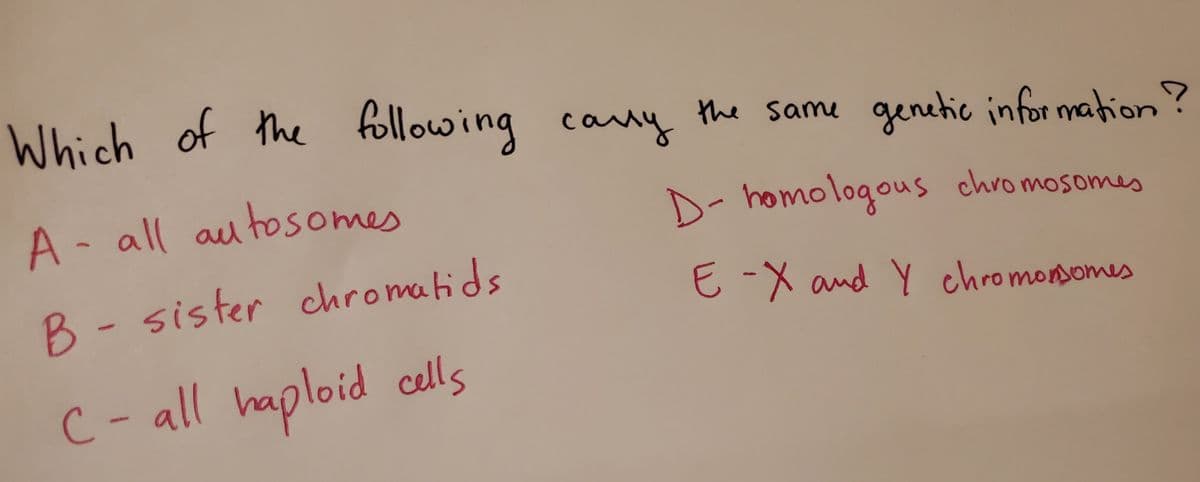 Which of the following carry the same genetic information?
A - all autosomes
B - sister chromatids
C - all haploid cells
D- homologous chromosomes
E - X and Y chromosomes